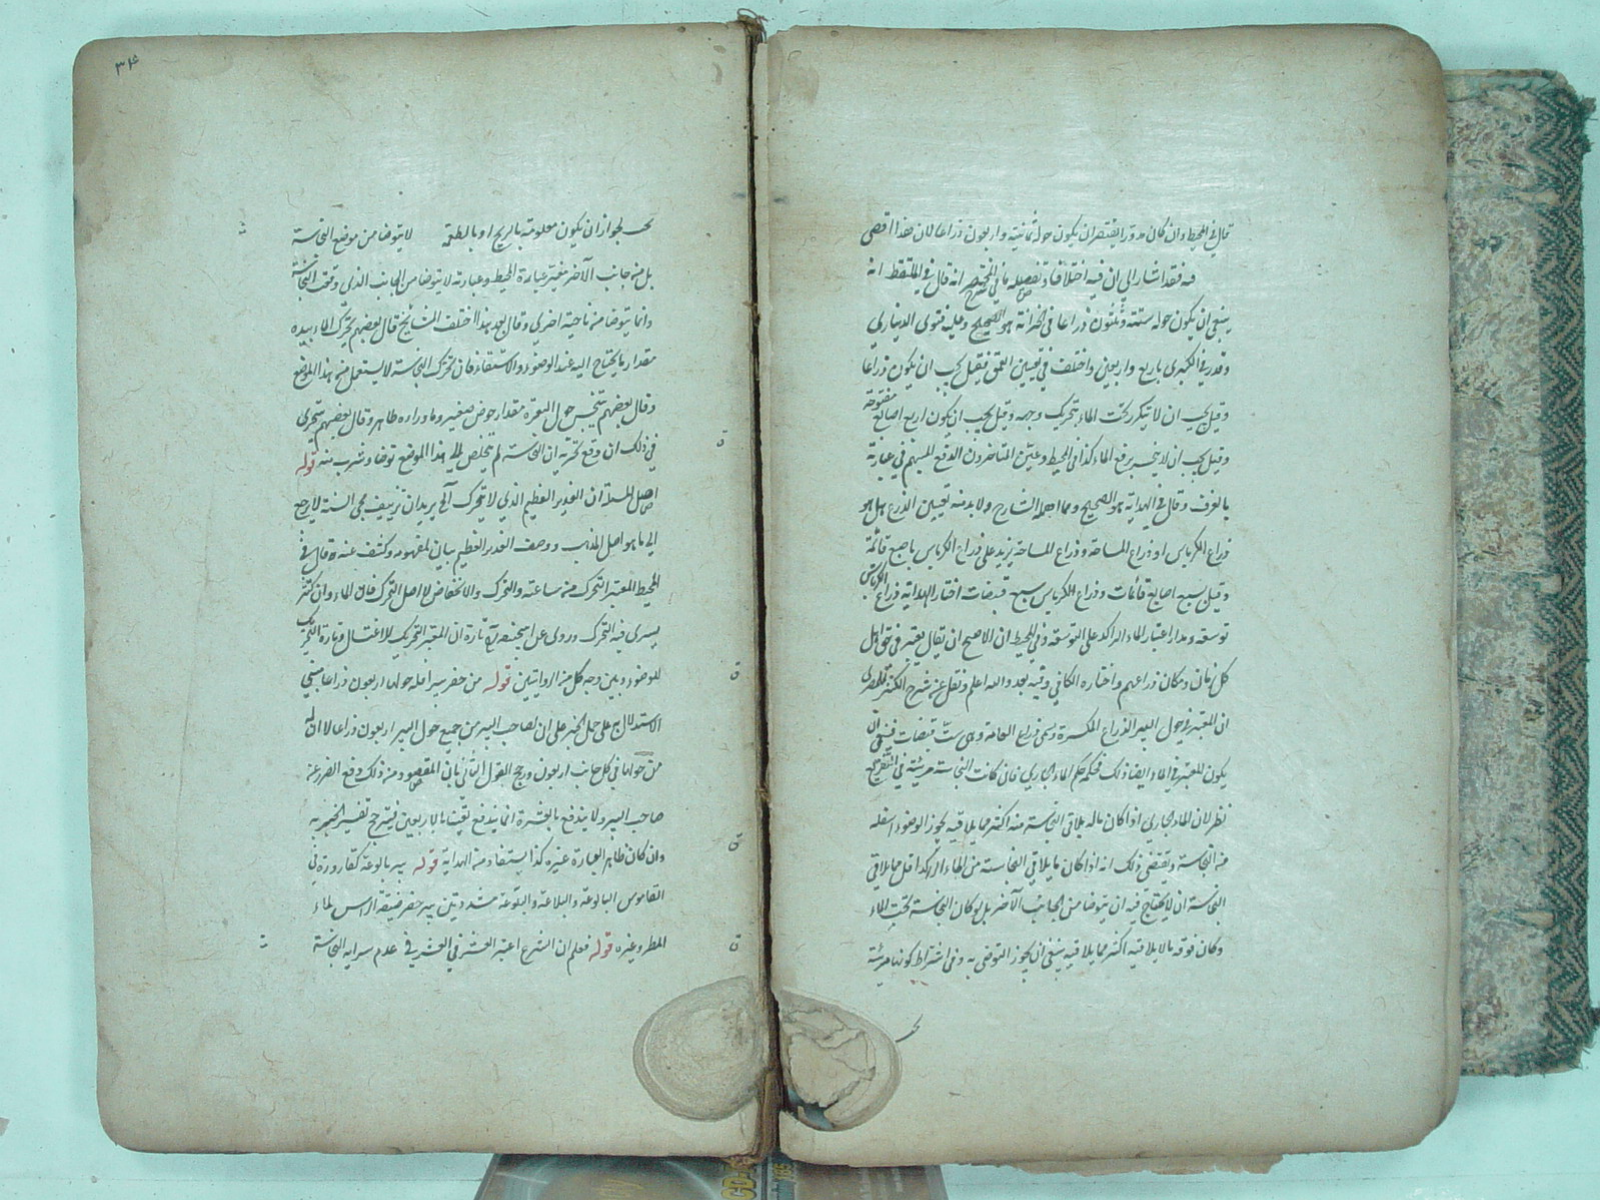 قال في المحيط وان كان مدورا يعتبر ان يكون حوله ثمانية واربعون ذراعا لان هذا اقصى
فيه فقد اشار الى ان فيه اختلافا وتفصيله ما في انه قال في الملتقط انه
ينبغي ان يكون حوله ستة وثلثون ذراعا في الخزانة هو الصحيح وعليه فتوى الديناري
وقدر في الكبرى باربع واربعين واختلف في تعيين العمق فقيل يجب ان يكون ذراعا
وقيل يجب ان لا يتكدر تحت الماء بتحريك وجهه وقيل يجب ان يكون اربع اصابع مفتوحة
وقيل يجب ان لا ينحسر برفع الماء كذا في المحيط وعين المتاخرون الرفع المبهم في عبارته
بالغرف وقال في الهداية هو الصحيح ومما اهمله الشارح ولا بد منه تعيين الذرع هل هو
ذراع الكرباس او ذراع المساحة وذراع المساحة يزيد على ذراع الكرباس باصبع قائمة
وقيل بسبع اصابع قائمات وذراع الكرباس سبع قبضات اختار الهداية ذراع الكرباس
توسعة ومدار اعتبار الماء الراكد على التوسعة وفي المحيط ان الاصح ان يقال يعتبر في حق اهل
كل زمان ومكان ذراعهم واختاره الكافي وفيه بعد والله اعلم ونقل عن شرح الكنز للمصري
ان المعتبر في حول البير الذراع المكسرة وهي ذراع العامة وهي ست قبضات فينبغي ان
يكون المعتبر في الماء ايضا ذلك فحكمه حكم الماء الجاري فان كانت النجاسة مرئية في التفريع
نظر لان الماء الجاري اذا كان ما لم يلاقي النجاسة منه اكثر مما يلاقيه يجوز الوضوء اسفله
منه النجاسة ويقتضي ذلك انه اذا كان ما يلاقي النجاسة من الماء الراكد اقل مما لا يلاقي
النجاسة ان لا يحتاج فيه ان يتوضا من الجانب الآخر بل لو كان النجاسة تحت الماء
وكان فوقه ما لا يلاقيه اكثر مما يلاقيه ينبغي ان يجوز التوضي به وفي اشتراط كونها مرئية
بحث
٣٤
بحث لجواز ان يكون معلومة بالريح او بالطعم لا يتوضا من موضع النجاسة
بل من جانب الآخر مغير عبارة المحيط وعبارته لا يتوضا من الجانب الذي وقعت النجاسة
وانما يتوضا من ناحية اخرى وقال بعد هذا اختلف المشايخ قال بعضهم يحرك الماء بيده
مقدار ما يحتاج اليه عند الوضوء والاستقاء فان تحرك النجاسة لا يستعمل من هذا الموضع
وقال بعضهم يتنجس حول البعرة مقدار حوض صغير وما وراءه طاهر وقال بعضهم يتحرى
في ذلك ان وقع تحريه ان النجاسة لم يخلص الى هذا الموضع توضا وشرب منه قوله
اصل المسلة ان الغدير العظيم الذي لا يتحرك الخ يريد ان تزييف محي السنة لا يرجع
الى ما هو اصل المذهب ووصف الغدير العظيم بيان لمفهومه وكشف عنه قال في
المحيط المعتبر التحرك من ساعته والتحرك والانخفاض لا اصل التحرك فان الماء وان كثر
يسرى فيه التحرك وروى عن ابي حنيفة تارة ان المعتبر التحريك للاغتسال وتارة التحريك
للوضوء وبين وجه كل من الروايتين قوله من حفر بيرا فله حولها اربعون ذراعا مبني
الاستدلال به على حمل الخبر على ان لصاحب البير من جميع حول البير اربعون ذراعا لا ان له
من حولها في كل جانب اربعون ورجح القول الثاني بان المقصود منه ذلك دفع الضرر عن
صاحب البير ولا يندفع بالعشرة انما يندفع يقينا بالاربعين فيترجح تفسير الخبر به
وان كان ظاهر العبارة غيره كذا يستفاد من الهداية قوله بير بالوعة كقارورة في
القاموس البالوعة والبلاعة والبلوعة مشددتين بير حفر ضيقة الراس لماء
المطر وغيره قوله فعلم ان الشرع اعتبر العشر في العشر في عدم سراية النجاسة